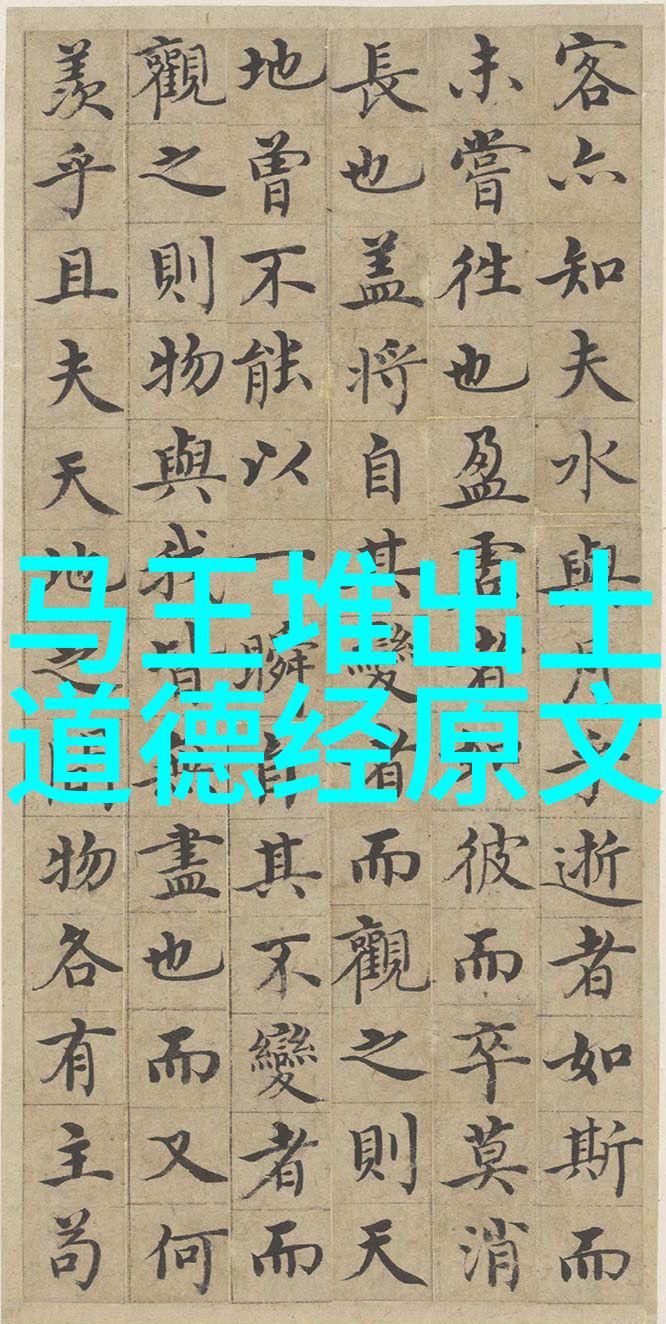 客亦知夫水與月乎逝者如斯而
未嘗往也盈虛者如彼而卒莫消
長也盖將自其變者而觀之則天
地曾不能以一瞬自其不變者而
觀之則物與我皆無盡也而又何
羨乎且夫天地之間物各有主苟
马王堆出土
道德经原文